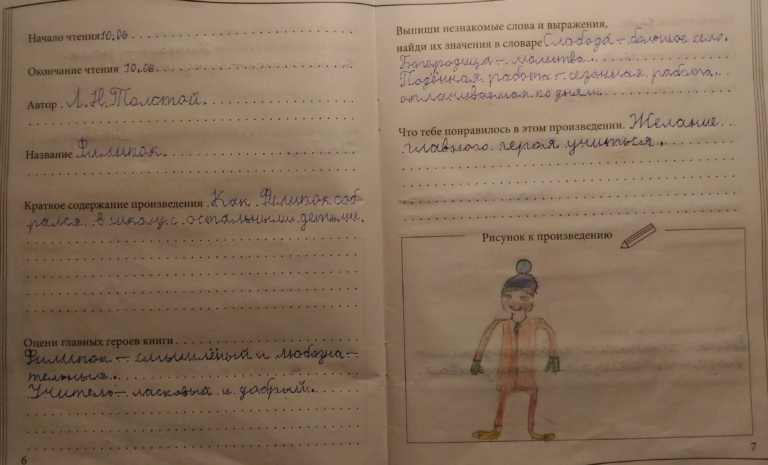 Начало чтения 10.06
Окончание чтения 10.06
Автор Л.Н.Толстой.
Название Филипок.
Краткое содержание произведения Как Филипок соб-
рался в школу с остальными детьми.
Оцени главных героев книги
Филипок – смышлёный и любозна-
тельный.
Учитель – ласковый и добрый.
6
Выпиши незнакомые слова и выражения,
найди их значения в словаре Слобода – большое село.
Богородица – молитва.
Подённая работа – сезонная работа,
оплачиваемая по дням.
Что тебе понравилось в этом произведении. Желание
главного героя учиться.
Рисунок к произведению
7